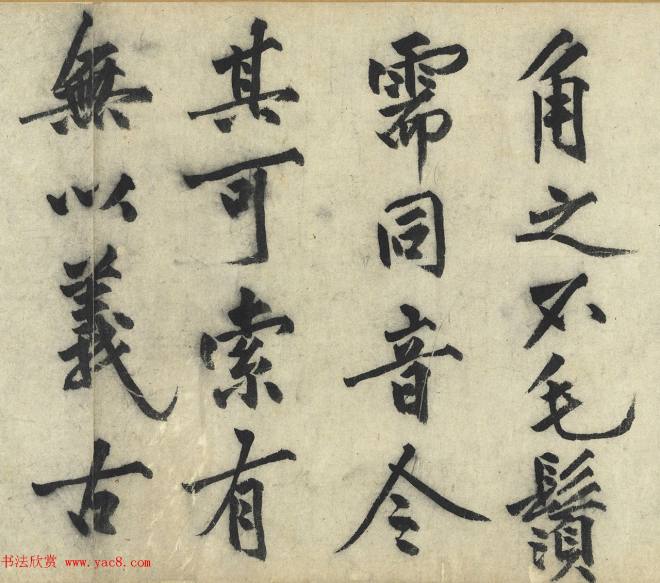 角之不毛鬚
需同音令
其可索有
無以義古
书法欣赏 www.yac8.com